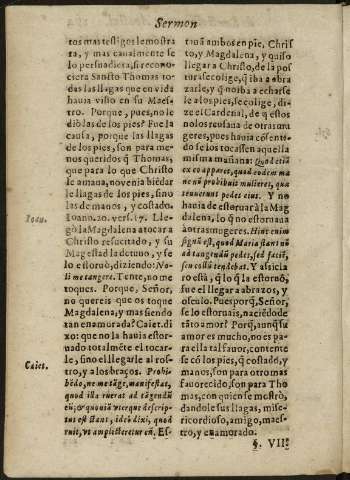 Sermon
tos mas testigos le mostra
ra, y mas canalmente se
lo persuadiera, si recono-
ciera Sancto Thomas to-
das las llagas que en vida
hauia visto en su Maes-
tro. Porque, pues, no le
dio las de los pies? Fue la
causa, porque las llagas
de los pies, son para me-
nos queridos q̃ Thomas,
que para lo que Christo
le amaua, no venia biẽ dar
le llagas de los pies, sino
las de manos, y costado.
Ioan. 20. vers. 17. Lle-
gò la Magdalena a tocar a
Christo resucitado, y su
Magestad la detuuo, y se
lo estoruò, diziendo: No-
li me tangere. Tente, no me
toques. Porque, Señor,
no quereis que os toque
Magdalena, y mas siendo
tan enamorada? Caiet. di
xo: que no la hauia estor-
uado totalmẽte el tocar-
le, sino el llegarle al ros-
tro, y a los braços. Prohi-
bẽdo, ne me tãge, manifestat,
quod illa ruerat ad tãgendũ
eũ; & quoniã vterque descrip-
tus est stant, ideò dixi, quod
ruit, vt amplecteretur eũ. Es-
Ioan.
Caiet.
tauã ambos en pie, Chris
to, y Magdalena, y quiso
llegar a Christo, de la pos
tura se colige, q̃ iba a abra
zarle, y q̃ no iba a echarse
le a los pies, se colige, di-
ze el Cardenal, de q̃ estos
no los recusaua de otras mu
geres, pues hauia cõsenti-
do se los tocassen aquella
misma mañana: Quod etiã
ex eo apparet, quod eodem ma
ne nũ prohibuit mulieres, qua
tenuerunt pedes eius. Y no
hauia de estoruar à la Mag
dalena, lo q̃ no estoruaua
à otras mugeres. Hinc enim
signũ est, quod Maria stans nũ
ad tangendũ pedes, sed faciẽ,
seu collũ tendebat. Y assi cla
ro està, q̃ lo q̃ la estornò,
fue el llegar a abrazos, y
osculo. Pues porq̃, Señor,
se lo estoruais, naciẽdo de
tãto amor? Porq̃, aunq̃ su
amor es mucho, no es pa-
ra ella tal fauor, contente
se cõ los pies, q̃ costado, y
manos, son para otro mas
fauorecido, son para Tho
mas, con quien se mostrò,
dandole sus llagas, mise-
ricordioso, amigo, maes-
tro, y enamorado.
§. VII.º